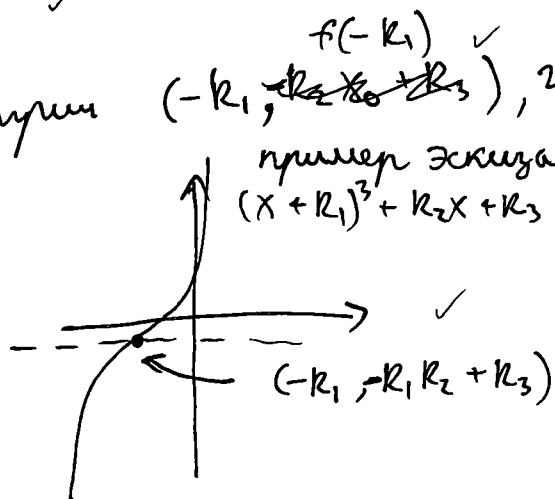 f(-k₁) ✓
(-k₁; ), 2
пример эскиза
(x + k₁)³ + k₂x + k₃
✓
(-k₁, -k₁k₂ + k₃)